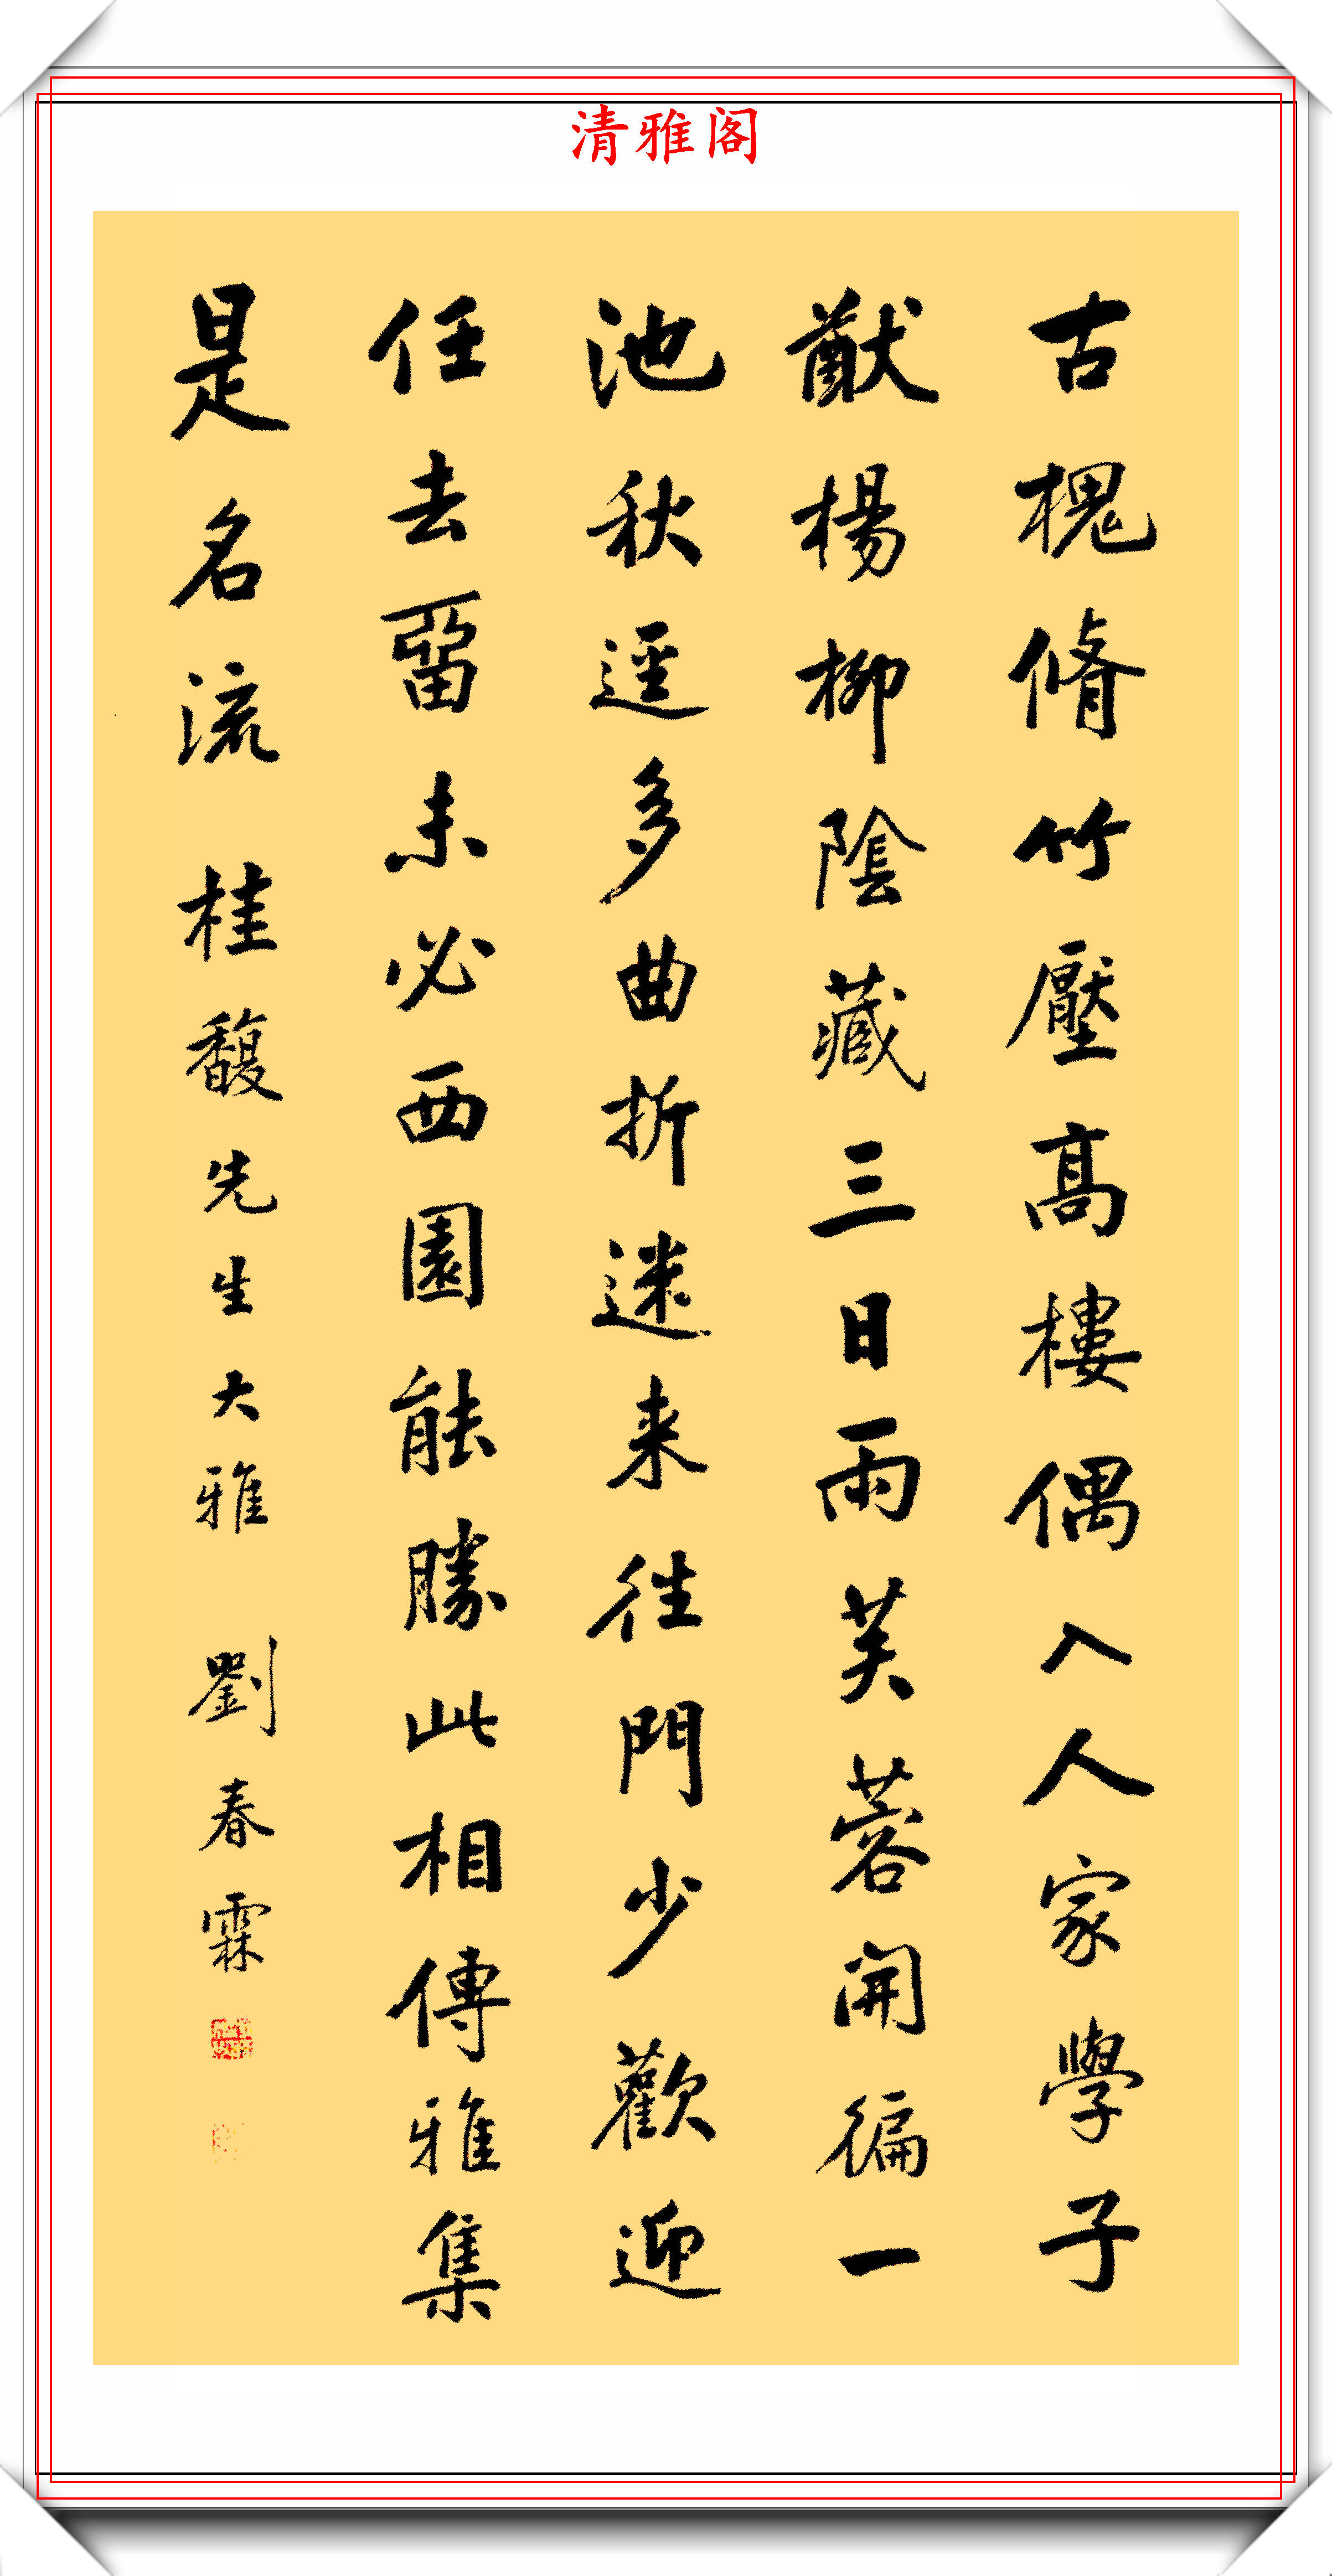 清雅阁
古槐脩竹壓髙樓偶入人家學子
猷楊柳陰藏三日雨芙蓉開徧一
池秋逕多曲折迷来往門少歡迎
任去畱未必西園能勝此相傳雅集
是名流 桂馥先生大雅 劉春霖